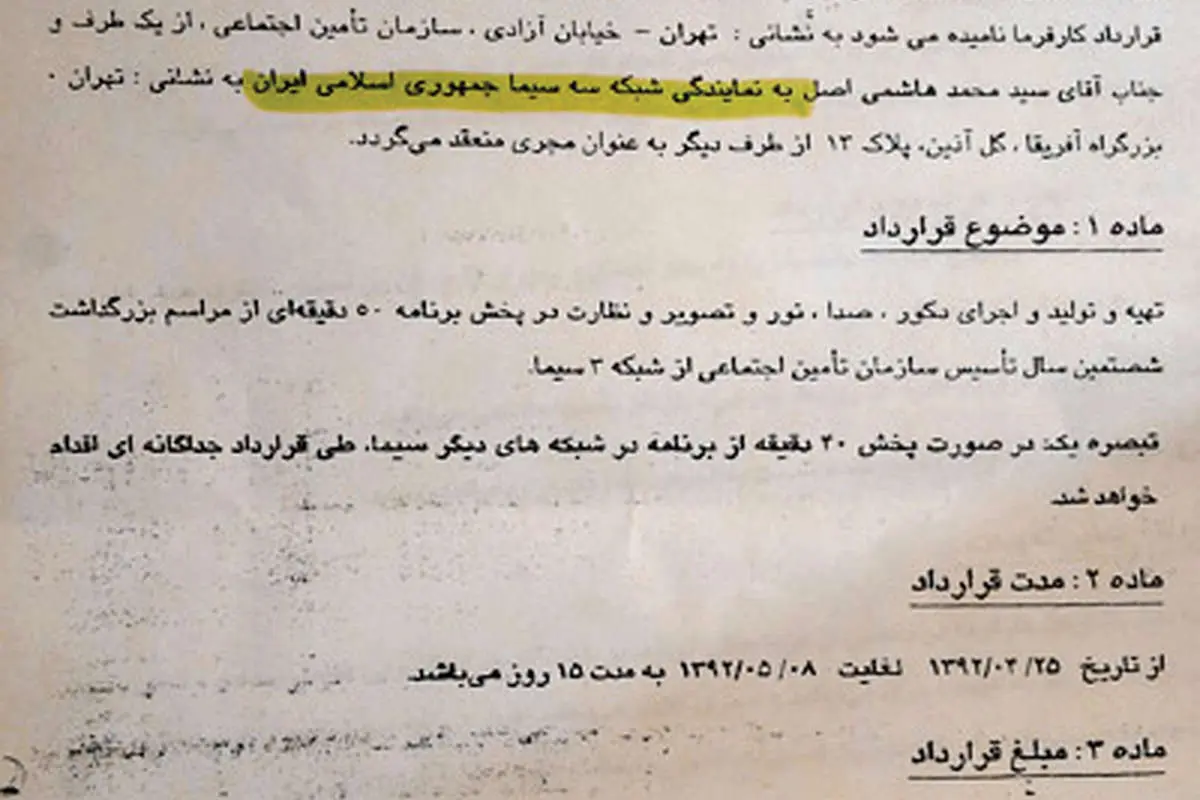 قرارداد کارفرما نامیده می شود به نشانی : تهران - خیابان آزادی ، سازمان تأمین اجتماعی ، از یک طرف و
جناب آقای سید محمد هاشمی اصل به نمایندگی شبکه سه سیما جمهوری اسلامی ایران به نشانی : تهران ·
بزرگراه آفریقا ، گل آذین، پلاک ۱۳ از طرف دیگر به عنوان مجری منعقد می‌گردد.
ماده ۱ : موضوع قرارداد
تهیه و تولید و اجرای دکور ، صدا ، نور و تصویر و نظارت در پخش برنامه ۵۰ دقیقه‌ای از مراسم بزرگداشت
شصتمین سال تأسیس سازمان تأمین اجتماعی از شبکه ۳ سیما.
تبصره یک: در صورت پخش ۴۰ دقیقه از برنامه در شبکه های دیگر سیما، طی قرارداد جداگانه ای اقدام
خواهد شد.
ماده ۲ : مدت قرارداد
از تاریخ ۱۳۹۲/۰۴/۲۵ لغایت ۱۳۹۲/۰۵/۰۸ به مدت ۱۵ روز می‌باشد.
ماده ۳ : مبلغ قرارداد